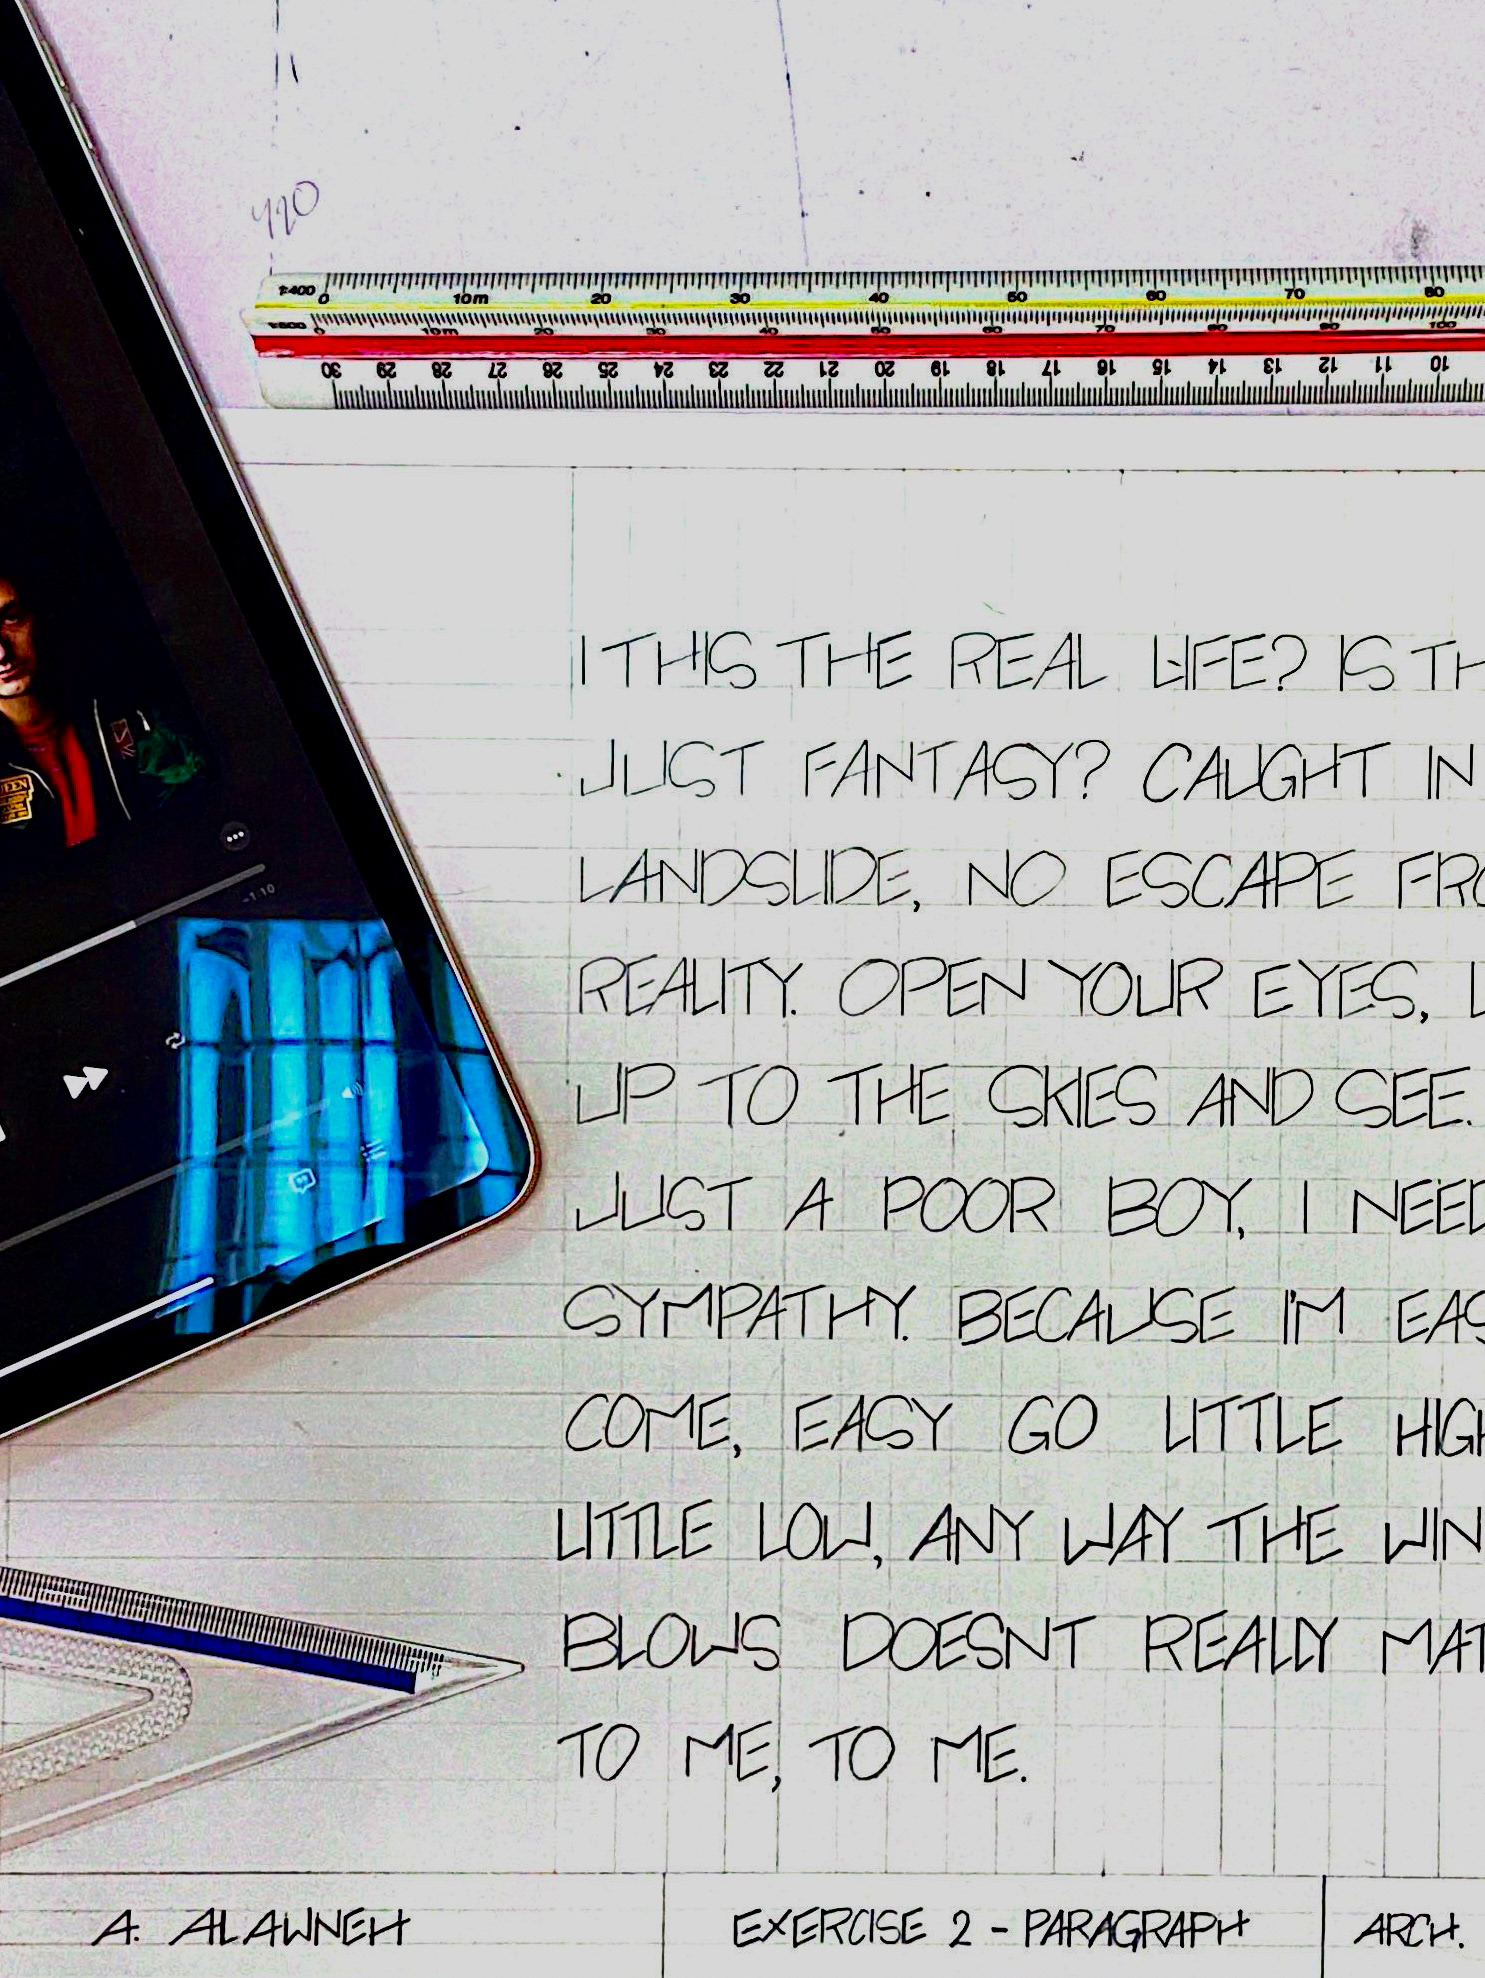 420
1:400 0 10m 20 30 40 50 60 70 80
1:500 0 10m 20 30 40 50 60 70 80 90 100
30 29 28 27 26 25 24 23 22 21 20 19 18 17 16 15 14 13 12 11 10
I THIS THE REAL LIFE? IS TH
JUST FANTASY? CAUGHT IN
LANDSLIDE, NO ESCAPE FRO
REALITY. OPEN YOUR EYES, L
UP TO THE SKIES AND SEE.
JUST A POOR BOY, I NEED
SYMPATHY. BECAUSE I'M EAS
COME, EASY GO LITTLE HIGH
LITTLE LOW, ANY WAY THE WIN
BLOWS DOESNT REALLY MAT
TO ME, TO ME.
-1:10
A. ALAWNEH
EXERCISE 2 - PARAGRAPH
ARCH.